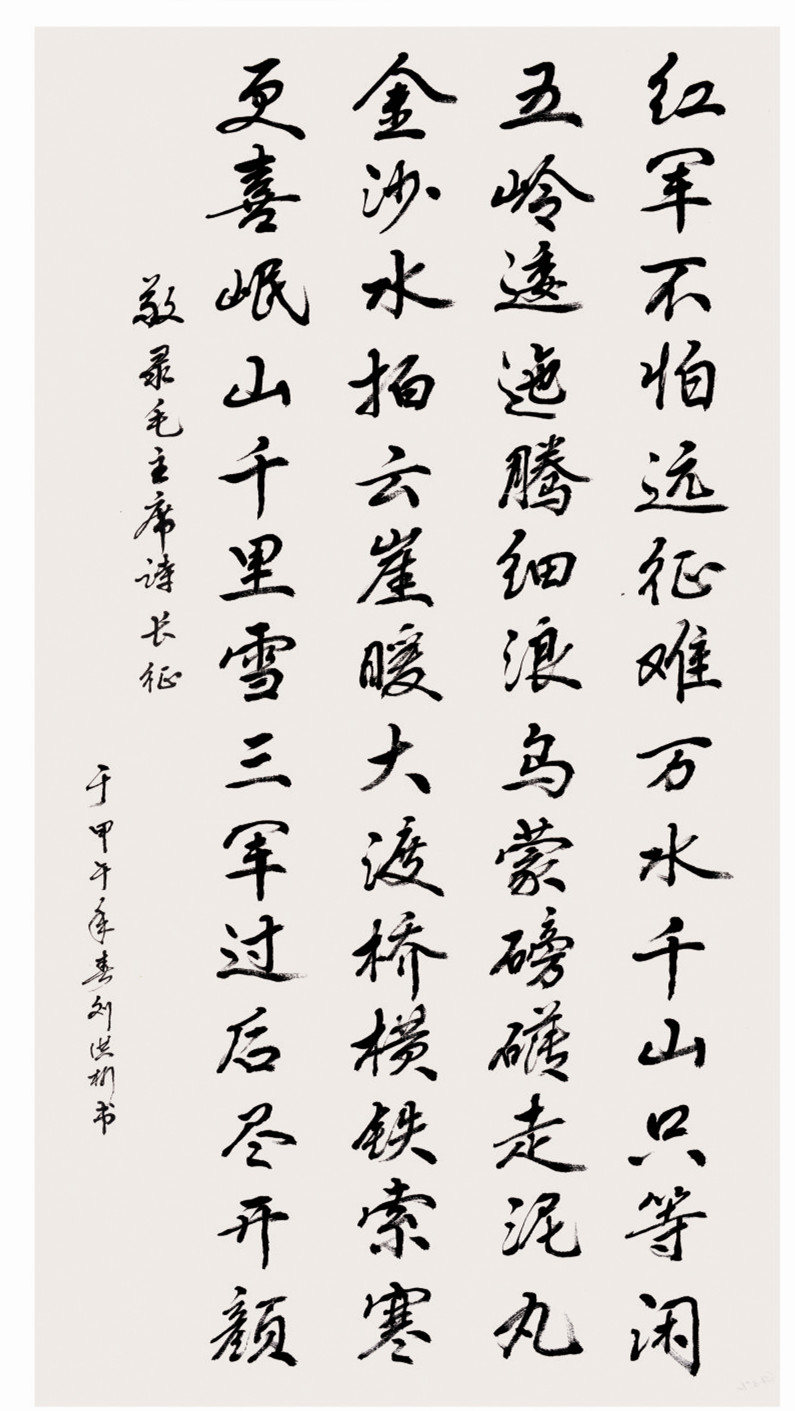 红军不怕远征难万水千山只等闲
五岭逶迤腾细浪乌蒙磅礴走泥丸
金沙水拍云崖暖大渡桥横铁索寒
更喜岷山千里雪三军过后尽开颜
敬录毛主席诗长征
于甲午年春刘洪彬书